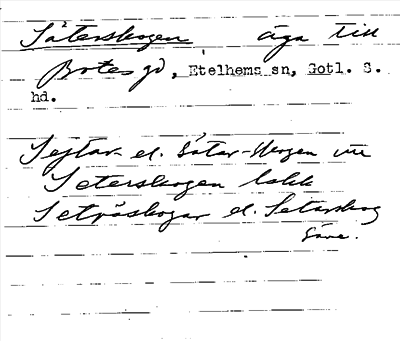 Säterskogen äga till
Botes gd, Etelhems sn, Gotl. S.
hd.
Sejtar el. Sätar-skogen un
Seterskogen
Seträskogar el. Setarskog
Säve.